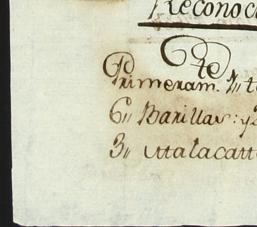 Reconoc
te
Primeram.
6,, Barillas: y
3,, Matacatt